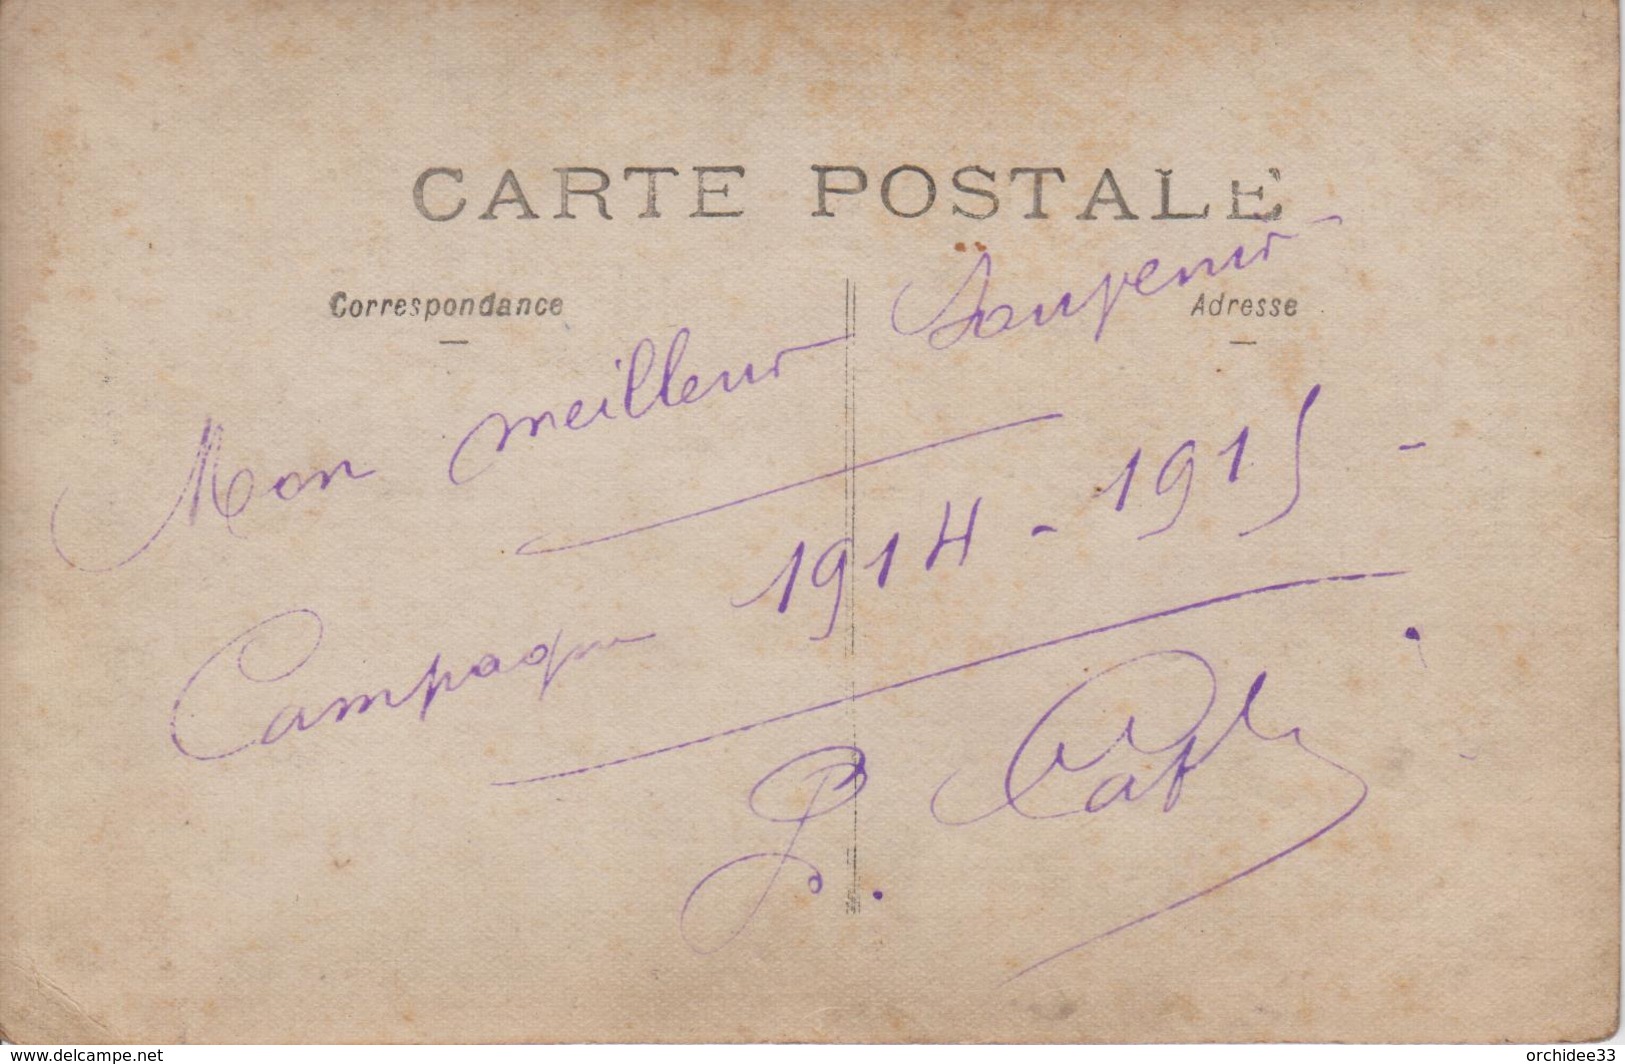 CARTE POSTALE
Correspondance
Adresse
Mon meilleur Souvenir
Campagne 1914 - 1915 -
P.
www.delcampe.net
orchidee33